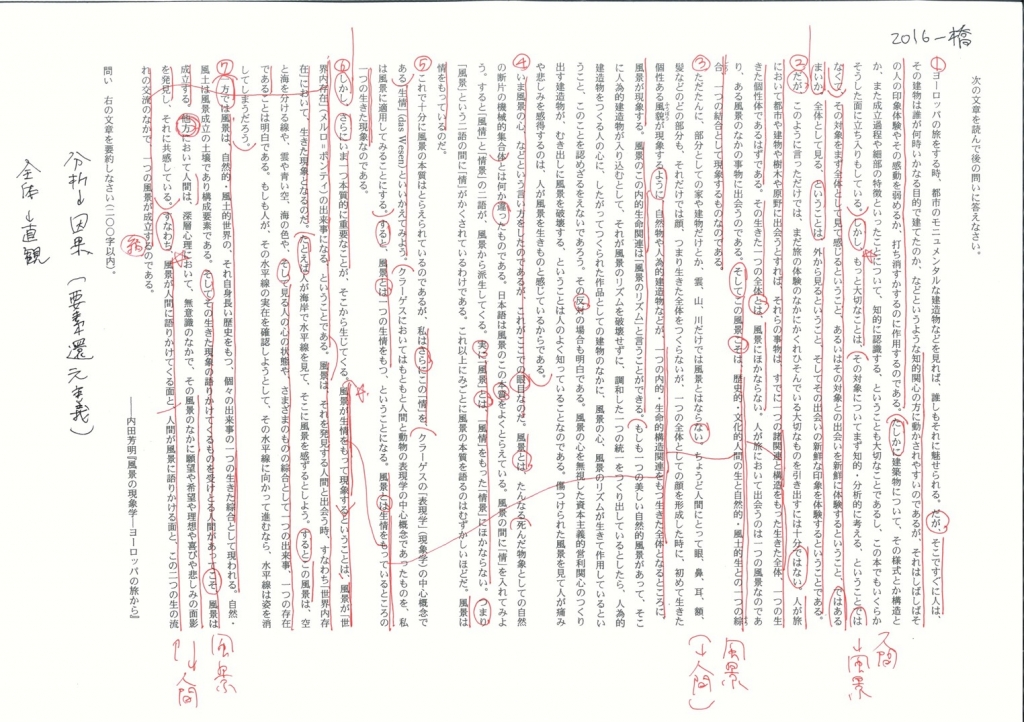 2016一橋
次の文章を読んで後の問いに答えなさい。
①ヨーロッパの旅をする時、都市のモニュメンタルな建造物などを見れば、誰しもそれに魅せられる。だが、そこですぐに人は、
その建物は誰が何時いかなる目的で建てたのか、などというような知的関心の方に動かされやすいのであるが、それはしばしばそ
の人の印象体験やその感動を弱めるか、打ち消すかするのに作用するのである。たしかに建築物について、その様式とか構造と
か、また成立過程や細部の特徴といったことについて、知的に認識する、ということも大切なことであるし、この本でもいくらか
そうした面に立ち入りもしている。しかし、もっと大切なことは、その対象についてまず知的・分析的に考える、ということでは
なくて、その対象をまず全体として見て感じるということ、あるいはその対象との出会いを新鮮に体験するということ、ではある
まいか。全体として見る、ということは、外から見るということ、そしてその出会いの新鮮な印象を体験するということである。
②だが、このように言っただけでは、まだ旅の体験のなかにかくれひそんでいる大切なものを引き出すには十分ではない。人が旅
において都市や建物や樹木や原野に出会うとすれば、それらの事物は、すでに一つの諸関連と構造をもった生きた全体、一つの生
きた個性体であるはずである。その生きた一つの全体とは、風景にほかならない。人が旅において出会うのは一つの風景なのであ
り、ある風景のなかの事物に出会うのである。そしてこの風景こそは、歴史的・文化的人間の生と自然的・風土的生との一つの綜
合、一つの結合として現象するものなのである。
③ただたんに、部分としての家や建物だけとか、雲、山、川だけでは風景とはならない。ちょうど人間にとって眼、鼻、耳、額、
髪などのどの部分も、それだけでは顔、つまり生きた全体をつくらないが、一つの全体としての顔を形成した時に、初めて生きた
個性ある風貌が現象するように、自然物や人為的建造物などが、一つの内的・生命的構造関連をもつ生きた全体となるところに、
風景が現象する。この内的生命関連は「風景のリズム」と言うことができる。もしも一つの美しい自然的風景があって、そこ
に人為的建造物が入り込むとして、それが風景のリズムを破壊せずに、調和した一つの統一をつくり出しているとしたら、人為的
建造物をつくる人の心に、したがってつくられた作品としての建物のなかに、風景の心、風景のリズムが生きて作用しているとい
うこと、このことを認めざるをえないだろう。その反対の場合も明白である。風景の心を無視した資本主義的営利関心のつくり
出す建造物が、むき出しに風景を破壊する、ということは人のよく知っていることなのである。傷つけられた風景を見て人が痛み
や悲しみを感得するのは、人が風景を生きものと感じているからである。
④いま風景の心、などという言い方をしたのであるが、これがここでの眼目なのだ。風景とは、たんなる死んだ物象としての自然
の断片の機械的集合体とは何か違ったものである。日本語は風景のこの本質をよくとらえている。風景の間に「情」を入れてみよ
う。すると「風情」と「情景」の二語が、風景から派生してくる。実に「風景」とは、「風情」をもった「情景」にほかならない。つまり
「風景」という二語の間に「情」がかくされているわけである。これ以上にみごとに風景の本質を語るのはむずかしいほどだ。風景は
情をもっているのだ。
⑤これで十分に風景の本質はとらえられているのであるが、私はさらにこの「情」を、クラーゲスの「表現学」(現象学)の中心概念で
ある「生情」(das Wesen)といいかえてみよう。クラーゲスにおいてはもともと人間と動物の表現学の中心概念であったものを、私
は風景に適用してみることにする。すると、風景とは一つの生情をもつ、ということになる。風景とは生情をもっているところの
一つの生きた現象なのである。
⑥しかし、さらにいま一つ本質的に重要なことが、そこから生じてくる。風景が生情をもって現象するということは、風景が「世
界内存在」(メルロ=ポンティ)の出来事になる、ということである。風景は、それを発見する人間と出会う時、すなわち「世界内存
在」において、生きた現象となるのだ。たとえば人が海岸で水平線を見て、そこに風景を感ずるとしよう。するとこの風景は、空
と海を分ける線や、雲や青い空、海の色や、そして見る人の心の状態や、さまざまのものの綜合として一つの出来事、一つの存在
であることは明白である。もしも人が、その水平線の実在を確認しようとして、その水平線に向かって進むなら、水平線は姿を消
してしまうだろう。
⑦一方では風景は、自然的・風土的世界の、それ自身長い歴史をもつ、個々の出来事の一つの生きた綜合として現われる。自然・
風土は風景成立の土壌であり構成要素である。そしてその生きた現象の語りかけてくるものを受けとる人間があってこそ、風景は
成立する。他方において人間は、深層心理において、無意識のなかで、その風景のなかに願望や希望や理想や喜びや悲しみの面影
を発見し、それに共感している。すなわち、風景が人間に語りかけてくる面と、人間が風景に語りかける面と、この二つの生の流
れの交流のなかで、一つの風景が成立するのである。
――内田芳明『風景の現象学―ヨーロッパの旅から』
問い 右の文章を要約しなさい(二〇〇字以内)。
分析↓因果(要素還元主義)
全体↓直観
人間
↓風景
風景
(↓人間)
風景
↑↓人間